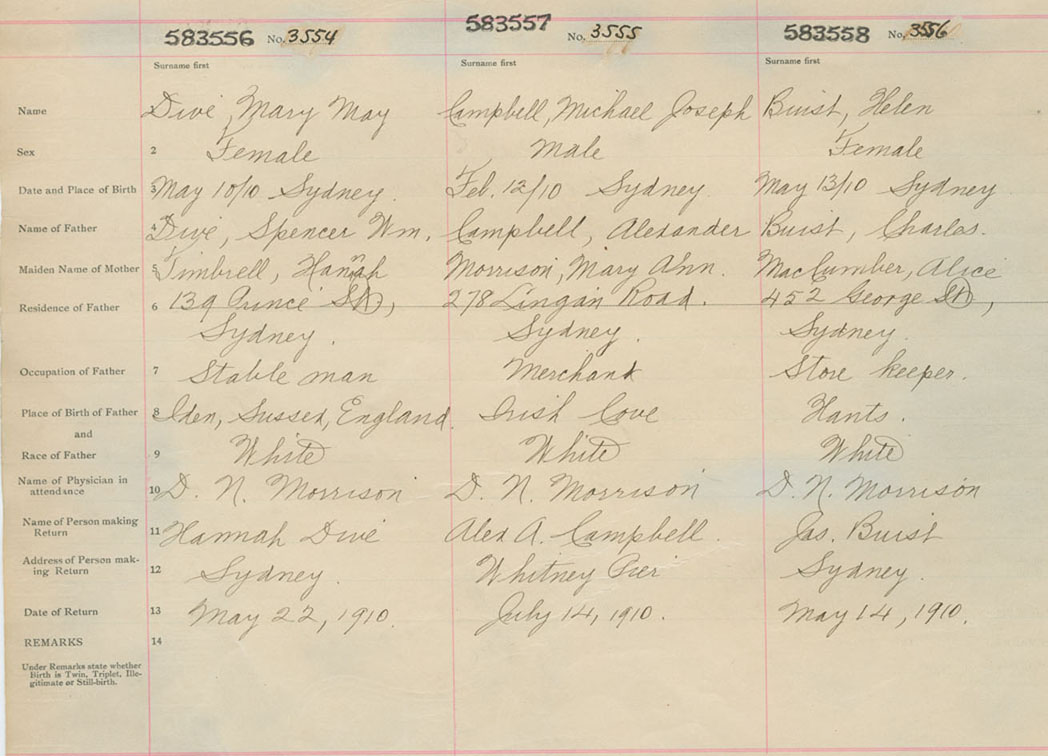 583556 No. 3554 583557 No. 3555 583558 No. 3556
Surname first Surname first Surname first
Name Divé, Mary May Campbell, Michael Joseph Buist, Helen
Sex 2 Female Male Female
Date and Place of Birth 3 May 10/10 Sydney. Feb. 12/10 Sydney. May 13/10 Sydney
Name of Father 4 Divé, Spencer Wm. Campbell, Alexander Buist, Charles.
Maiden Name of Mother 5 Timbrell, Hannah Morrison, Mary Ann. MacCumber, Alice
Residence of Father 6 139 Prince St, 278 Lingan Road. 452 George St,
Sydney. Sydney. Sydney.
Occupation of Father 7 Stable man Merchant Store keeper.
Place of Birth of Father 8 Iden, Sussex, England. Irish Cove Hants.
and
Race of Father 9 White White White
Name of Physician in
attendance 10 D. N. Morrison D. N. Morrison D. N. Morrison
Name of Person making
Return 11 Hannah Divé Alex A. Campbell. Jas. Buist
Address of Person mak-
ing Return 12 Sydney. Whitney Pier Sydney.
Date of Return 13 May 22, 1910. July 14, 1910. May 14, 1910.
REMARKS 14
Under Remarks state whether
Birth is Twin, Triplet, Ille-
gitimate or Still-birth.